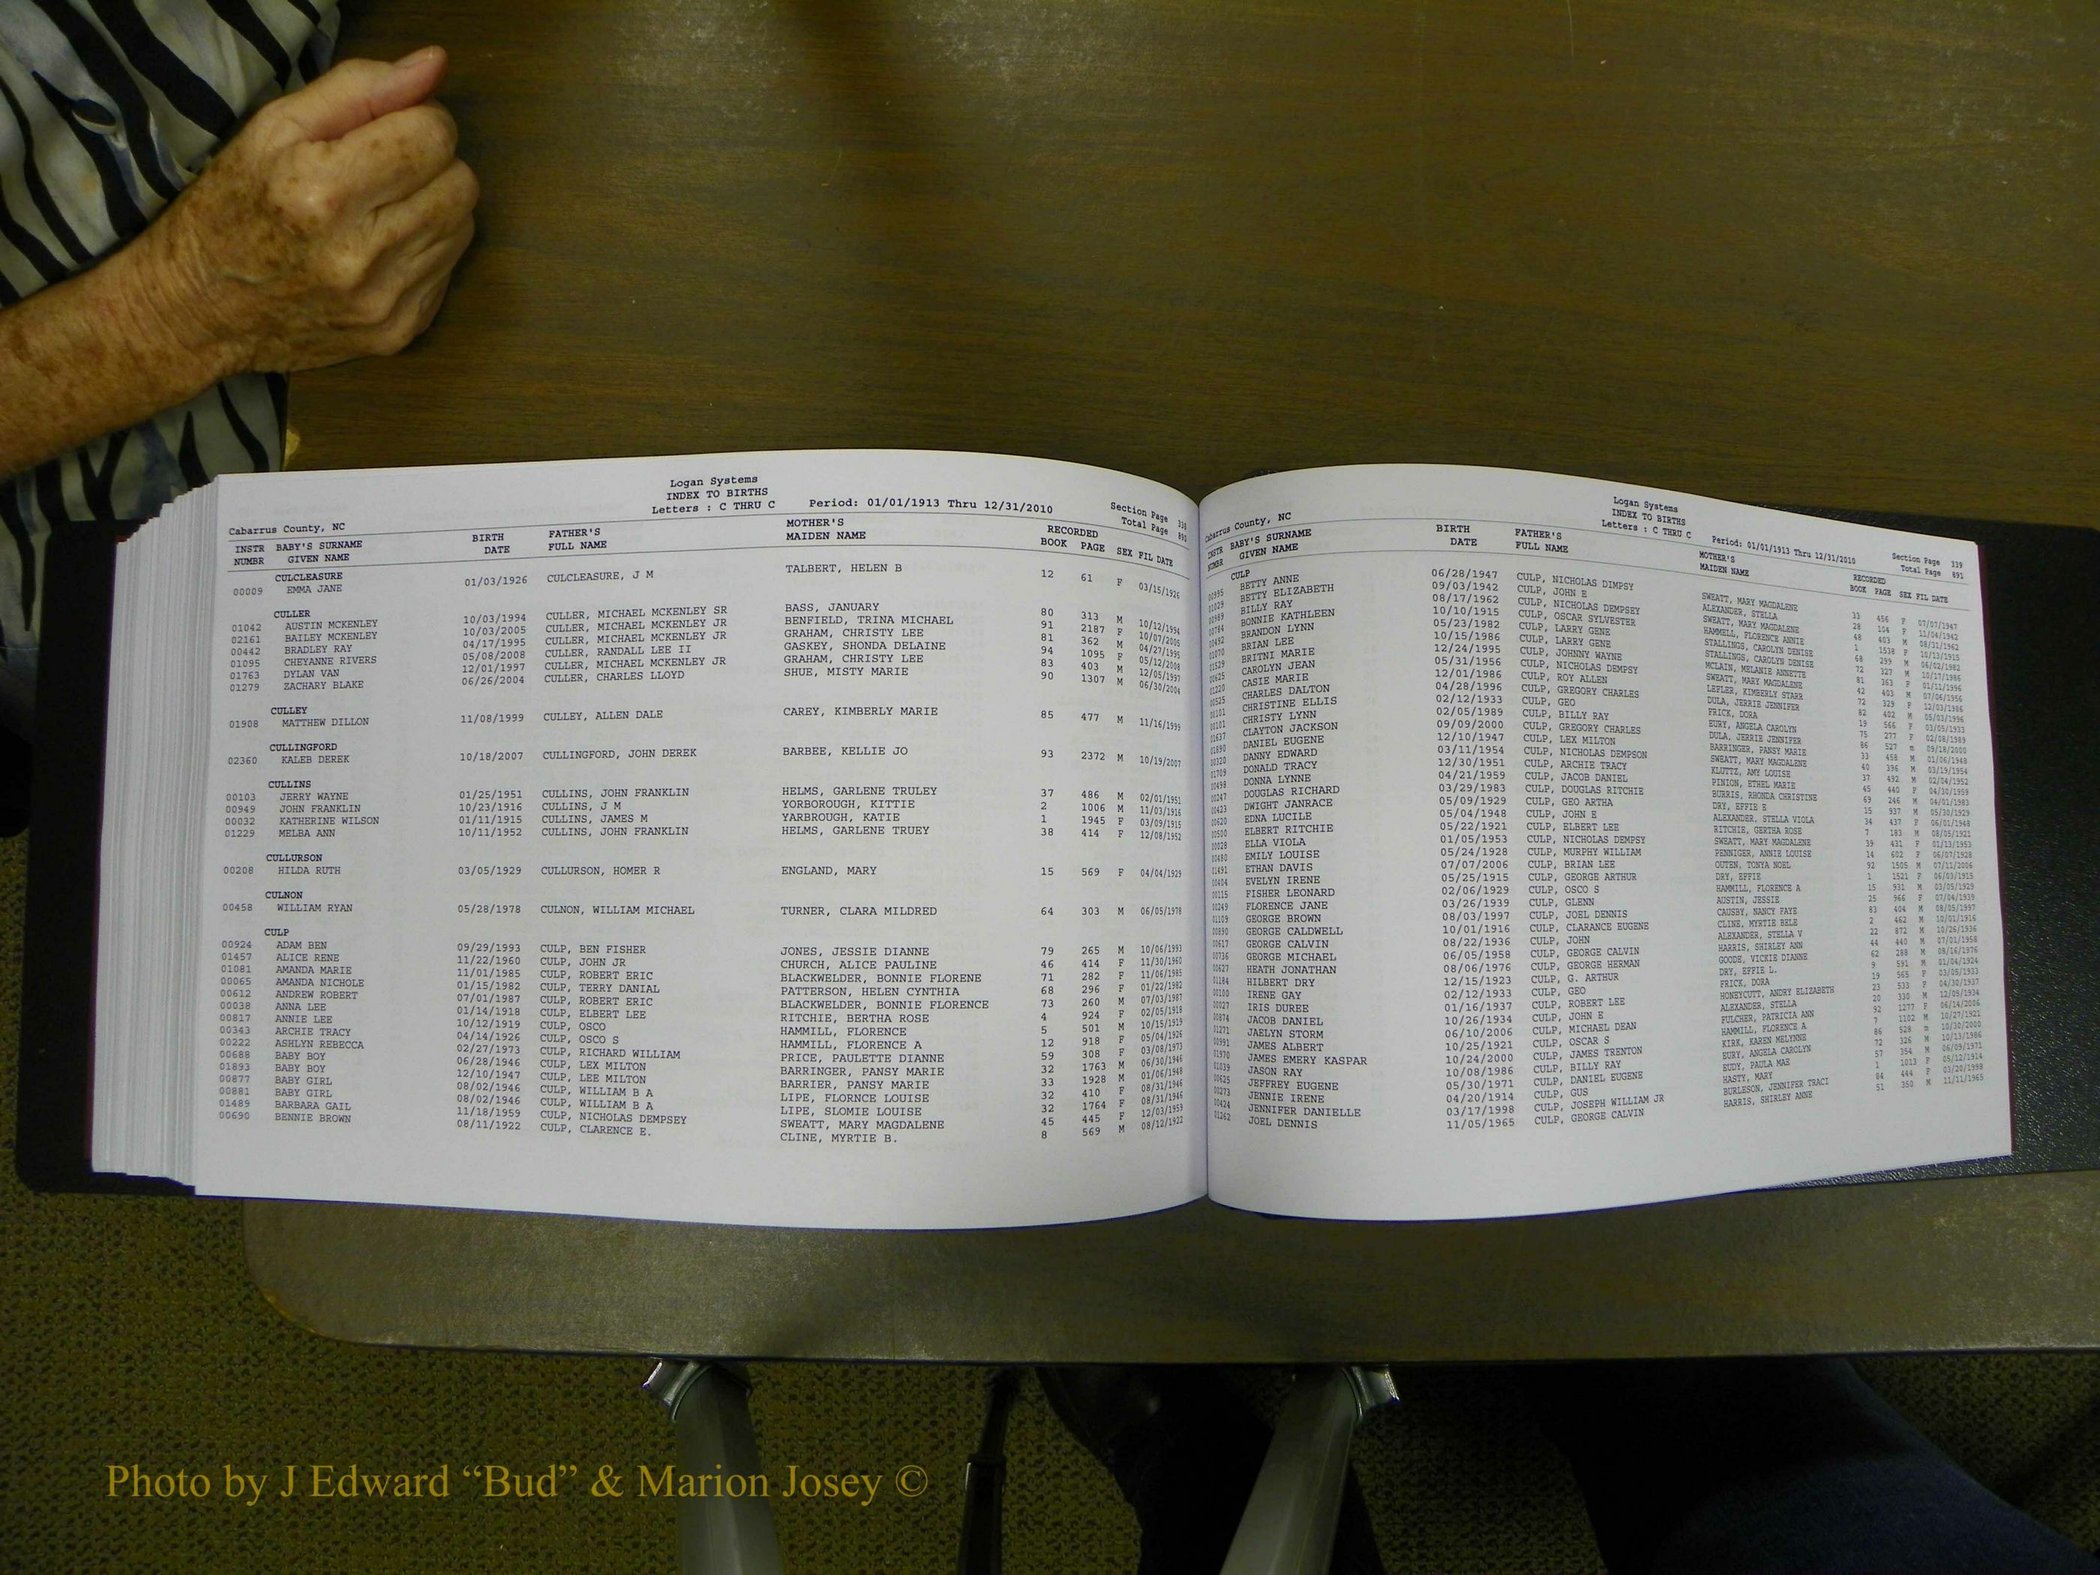 Logan Systems
INDEX TO BIRTHS
Cabarrus County, NC Letters : C THRU C Period: 01/01/1913 Thru 12/31/2010 Section Page 338
Total Page 890
INSTR BABY'S SURNAME BIRTH FATHER'S MOTHER'S RECORDED
NUMBR GIVEN NAME DATE FULL NAME MAIDEN NAME BOOK PAGE SEX FIL DATE
CULCLEASURE
00009 EMMA JANE 01/03/1926 CULCLEASURE, J M TALBERT, HELEN B 12 61 F 03/15/1926
CULLER
01042 AUSTIN MCKENLEY 10/03/1994 CULLER, MICHAEL MCKENLEY SR BASS, JANUARY 80 313 M 10/12/1994
02161 BAILEY MCKENLEY 10/03/2005 CULLER, MICHAEL MCKENLEY JR BENFIELD, TRINA MICHAEL 91 2187 F 10/07/2005
00442 BRADLEY RAY 04/17/1995 CULLER, MICHAEL MCKENLEY JR GRAHAM, CHRISTY LEE 81 362 M 04/27/1995
01095 CHEYANNE RIVERS 05/08/2008 CULLER, RANDALL LEE II GASKEY, SHONDA DELAINE 94 1095 F 05/12/2008
01763 DYLAN VAN 12/01/1997 CULLER, MICHAEL MCKENLEY JR GRAHAM, CHRISTY LEE 83 403 M 12/05/1997
01279 ZACHARY BLAKE 06/26/2004 CULLER, CHARLES LLOYD SHUE, MISTY MARIE 90 1307 M 06/30/2004
CULLEY
01908 MATTHEW DILLON 11/08/1999 CULLEY, ALLEN DALE CAREY, KIMBERLY MARIE 85 477 M 11/16/1999
CULLINGFORD
02360 KALEB DEREK 10/18/2007 CULLINGFORD, JOHN DEREK BARBEE, KELLIE JO 93 2372 M 10/19/2007
CULLINS
00103 JERRY WAYNE 01/25/1951 CULLINS, JOHN FRANKLIN HELMS, GARLENE TRULEY 37 486 M 02/01/1951
00949 JOHN FRANKLIN 10/23/1916 CULLINS, J M YORBOROUGH, KITTIE 2 1006 M 11/03/1916
00032 KATHERINE WILSON 01/11/1915 CULLINS, JAMES M YARBROUGH, KATIE 1 1945 F 03/09/1915
01229 MELBA ANN 10/11/1952 CULLINS, JOHN FRANKLIN HELMS, GARLENE TRUEY 38 414 F 12/08/1952
CULLURSON
00208 HILDA RUTH 03/05/1929 CULLURSON, HOMER R ENGLAND, MARY 15 569 F 04/04/1929
CULNON
00458 WILLIAM RYAN 05/28/1978 CULNON, WILLIAM MICHAEL TURNER, CLARA MILDRED 64 303 M 06/05/1978
CULP
00924 ADAM BEN 09/29/1993 CULP, BEN FISHER JONES, JESSIE DIANNE 79 265 M 10/06/1993
01457 ALICE RENE 11/22/1960 CULP, JOHN JR CHURCH, ALICE PAULINE 46 414 F 11/30/1960
01081 AMANDA MARIE 11/01/1985 CULP, ROBERT ERIC BLACKWELDER, BONNIE FLORENE 71 282 F 11/06/1985
00065 AMANDA NICHOLE 01/15/1982 CULP, TERRY DANIAL PATTERSON, HELEN CYNTHIA 68 296 F 01/22/1982
00612 ANDREW ROBERT 07/01/1987 CULP, ROBERT ERIC BLACKWELDER, BONNIE FLORENCE 73 260 M 07/03/1987
00038 ANNA LEE 01/14/1918 CULP, ELBERT LEE RITCHIE, BERTHA ROSE 4 924 F 02/05/1918
00817 ANNIE LEE 10/12/1919 CULP, OSCO HAMMILL, FLORENCE 5 501 M 10/15/1919
00343 ARCHIE TRACY 04/14/1926 CULP, OSCO S HAMMILL, FLORENCE A 12 918 F 05/04/1926
00222 ASHLYN REBECCA 02/27/1973 CULP, RICHARD WILLIAM PRICE, PAULETTE DIANNE 59 308 F 03/08/1973
00688 BABY BOY 06/28/1946 CULP, LEX MILTON BARRINGER, PANSY MARIE 32 1763 M 06/30/1946
01893 BABY BOY 12/10/1947 CULP, LEE MILTON BARRIER, PANSY MARIE 33 1928 M 01/06/1948
00877 BABY GIRL 08/02/1946 CULP, WILLIAM B A LIPE, FLORNCE LOUISE 32 410 F 08/31/1946
00881 BABY GIRL 08/02/1946 CULP, WILLIAM B A LIPE, SLOMIE LOUISE 32 1764 F 08/31/1946
01489 BARBARA GAIL 11/18/1959 CULP, NICHOLAS DEMPSEY SWEATT, MARY MAGDALENE 45 445 F 12/03/1959
00690 BENNIE BROWN 08/11/1922 CULP, CLARENCE E. CLINE, MYRTIE B. 8 569 M 08/12/1922
Logan Systems
INDEX TO BIRTHS
Cabarrus County, NC Letters : C THRU C Period: 01/01/1913 Thru 12/31/2010 Section Page 339
Total Page 891
INSTR BABY'S SURNAME BIRTH FATHER'S MOTHER'S RECORDED
NUMBR GIVEN NAME DATE FULL NAME MAIDEN NAME BOOK PAGE SEX FIL DATE
CULP
00995 BETTY ANNE 06/28/1947 CULP, NICHOLAS DIMPSY SWEATT, MARY MAGDALENE 33 456 F 07/07/1947
01029 BETTY ELIZABETH 09/03/1942 CULP, JOHN E ALEXANDER, STELLA 28 104 F 11/04/1942
00989 BILLY RAY 08/17/1962 CULP, NICHOLAS DEMPSEY SWEATT, MARY MAGDALENE 48 403 M 08/31/1962
00784 BONNIE KATHLEEN 10/10/1915 CULP, OSCAR SYLVESTER HAMMELL, FLORENCE ANNIE 1 1538 F 10/13/1915
00492 BRANDON LYNN 05/23/1982 CULP, LARRY GENE STALLINGS, CAROLYN DENISE 68 299 M 06/02/1982
01070 BRIAN LEE 10/15/1986 CULP, LARRY GENE STALLINGS, CAROLYN DENISE 72 327 M 10/17/1986
01529 BRITNI MARIE 12/24/1995 CULP, JOHNNY WAYNE MCLAIN, MELANIE ANNETTE 81 363 F 01/11/1996
00625 CAROLYN JEAN 05/31/1956 CULP, NICHOLAS DEMPSY SWEATT, MARY MAGDALENE 42 403 M 07/06/1956
01220 CASIE MARIE 12/01/1986 CULP, ROY ALLEN LEFLER, KIMBERLY STARR 72 329 F 12/03/1986
00525 CHARLES DALTON 04/28/1996 CULP, GREGORY CHARLES DULA, JERRIE JENNIFER 82 402 M 05/03/1996
00101 CHRISTINE ELLIS 02/12/1933 CULP, GEO FRICK, DORA 19 566 F 03/05/1933
00101 CHRISTY LYNN 02/05/1989 CULP, BILLY RAY EURY, ANGELA CAROLYN 75 277 F 02/08/1989
01637 CLAYTON JACKSON 09/09/2000 CULP, GREGORY CHARLES DULA, JERRIE JENNIFER 86 527 m 09/18/2000
01890 DANIEL EUGENE 12/10/1947 CULP, LEX MILTON BARRINGER, PANSY MARIE 33 458 M 01/06/1948
00320 DANNY EDWARD 03/11/1954 CULP, NICHOLAS DEMPSON SWEATT, MARY MAGDALENE 40 396 M 03/19/1954
01709 DONALD TRACY 12/30/1951 CULP, ARCHIE TRACY KLUTTZ, AMY LOUISE 37 492 M 02/04/1952
00498 DONNA LYNNE 04/21/1959 CULP, JACOB DANIEL PINION, ETHEL MARIE 45 440 F 04/30/1959
00247 DOUGLAS RICHARD 03/29/1983 CULP, DOUGLAS RITCHIE BURRIS, RHONDA CHRISTINE 69 246 M 04/01/1983
00423 DWIGHT JANRACE 05/09/1929 CULP, GEO ARTHA DRY, EFFIE E 15 937 M 05/30/1929
00620 EDNA LUCILE 05/04/1948 CULP, JOHN E ALEXANDER, STELLA VIOLA 34 437 F 06/01/1948
00500 ELBERT RITCHIE 05/22/1921 CULP, ELBERT LEE RITCHIE, GERTHA ROSE 7 183 M 08/05/1921
00028 ELLA VIOLA 01/05/1953 CULP, NICHOLAS DEMPSY SWEATT, MARY MAGDALENE 39 431 F 01/13/1953
00480 EMILY LOUISE 05/24/1928 CULP, MURPHY WILLIAM PENNIGER, ANNIE LOUISE 14 602 F 06/07/1928
01491 ETHAN DAVIS 07/07/2006 CULP, BRIAN LEE OUTEN, TONYA NOEL 92 1505 M 07/11/2006
00404 EVELYN IRENE 05/25/1915 CULP, GEORGE ARTHUR DRY, EFFIE 1 1521 F 06/03/1915
00115 FISHER LEONARD 02/06/1929 CULP, OSCO S HAMMILL, FLORENCE A 15 931 M 03/05/1929
00249 FLORENCE JANE 03/26/1939 CULP, GLENN AUSTIN, JESSIE 25 966 F 07/04/1939
01109 GEORGE BROWN 08/03/1997 CULP, JOEL DENNIS CAUSBY, NANCY FAYE 83 404 M 08/05/1997
00890 GEORGE CALDWELL 10/01/1916 CULP, CLARANCE EUGENE CLINE, MYRTIE BELE 2 462 M 10/01/1916
00617 GEORGE CALVIN 08/22/1936 CULP, JOHN ALEXANDER, STELLA V 22 872 M 10/26/1936
00736 GEORGE MICHAEL 06/05/1958 CULP, GEORGE CALVIN HARRIS, SHIRLEY ANN 44 440 M 07/01/1958
00627 HEATH JONATHAN 08/06/1976 CULP, GEORGE HERMAN GOODE, VICKIE DIANNE 62 288 M 08/16/1976
01184 HILBERT DRY 12/15/1923 CULP, G. ARTHUR DRY, EFFIE L. 9 591 M 01/04/1924
00100 IRENE GAY 02/12/1933 CULP, GEO FRICK, DORA 19 565 F 03/05/1933
00027 IRIS DUREE 01/16/1937 CULP, ROBERT LEE HONEYCUTT, ANDRY ELIZABETH 23 533 F 04/30/1937
00874 JACOB DANIEL 10/26/1934 CULP, JOHN E ALEXANDER, STELLA 20 330 M 12/05/1934
01271 JAELYN STORM 06/10/2006 CULP, MICHAEL DEAN FULCHER, PATRICIA ANN 92 1277 F 06/14/2006
00991 JAMES ALBERT 10/25/1921 CULP, OSCAR S HAMMILL, FLORENCE A 7 1102 M 10/27/1921
01970 JAMES EMERY KASPAR 10/24/2000 CULP, JAMES TRENTON KIRK, KAREN MELYNNE 86 528 m 10/30/2000
01039 JASON RAY 10/08/1986 CULP, BILLY RAY EURY, ANGELA CAROLYN 72 326 M 10/13/1986
00625 JEFFREY EUGENE 05/30/1971 CULP, DANIEL EUGENE EUDY, PAULA MAE 57 354 M 06/09/1971
00273 JENNIE IRENE 04/20/1914 CULP, GUS HASTY, MARY 1 1013 F 05/12/1914
00424 JENNIFER DANIELLE 03/17/1998 CULP, JOSEPH WILLIAM JR BURLESON, JENNIFER TRACI 84 444 F 03/20/1998
01262 JOEL DENNIS 11/05/1965 CULP, GEORGE CALVIN HARRIS, SHIRLEY ANNE 51 350 M 11/11/1965
Photo by J Edward “Bud” & Marion Josey ©